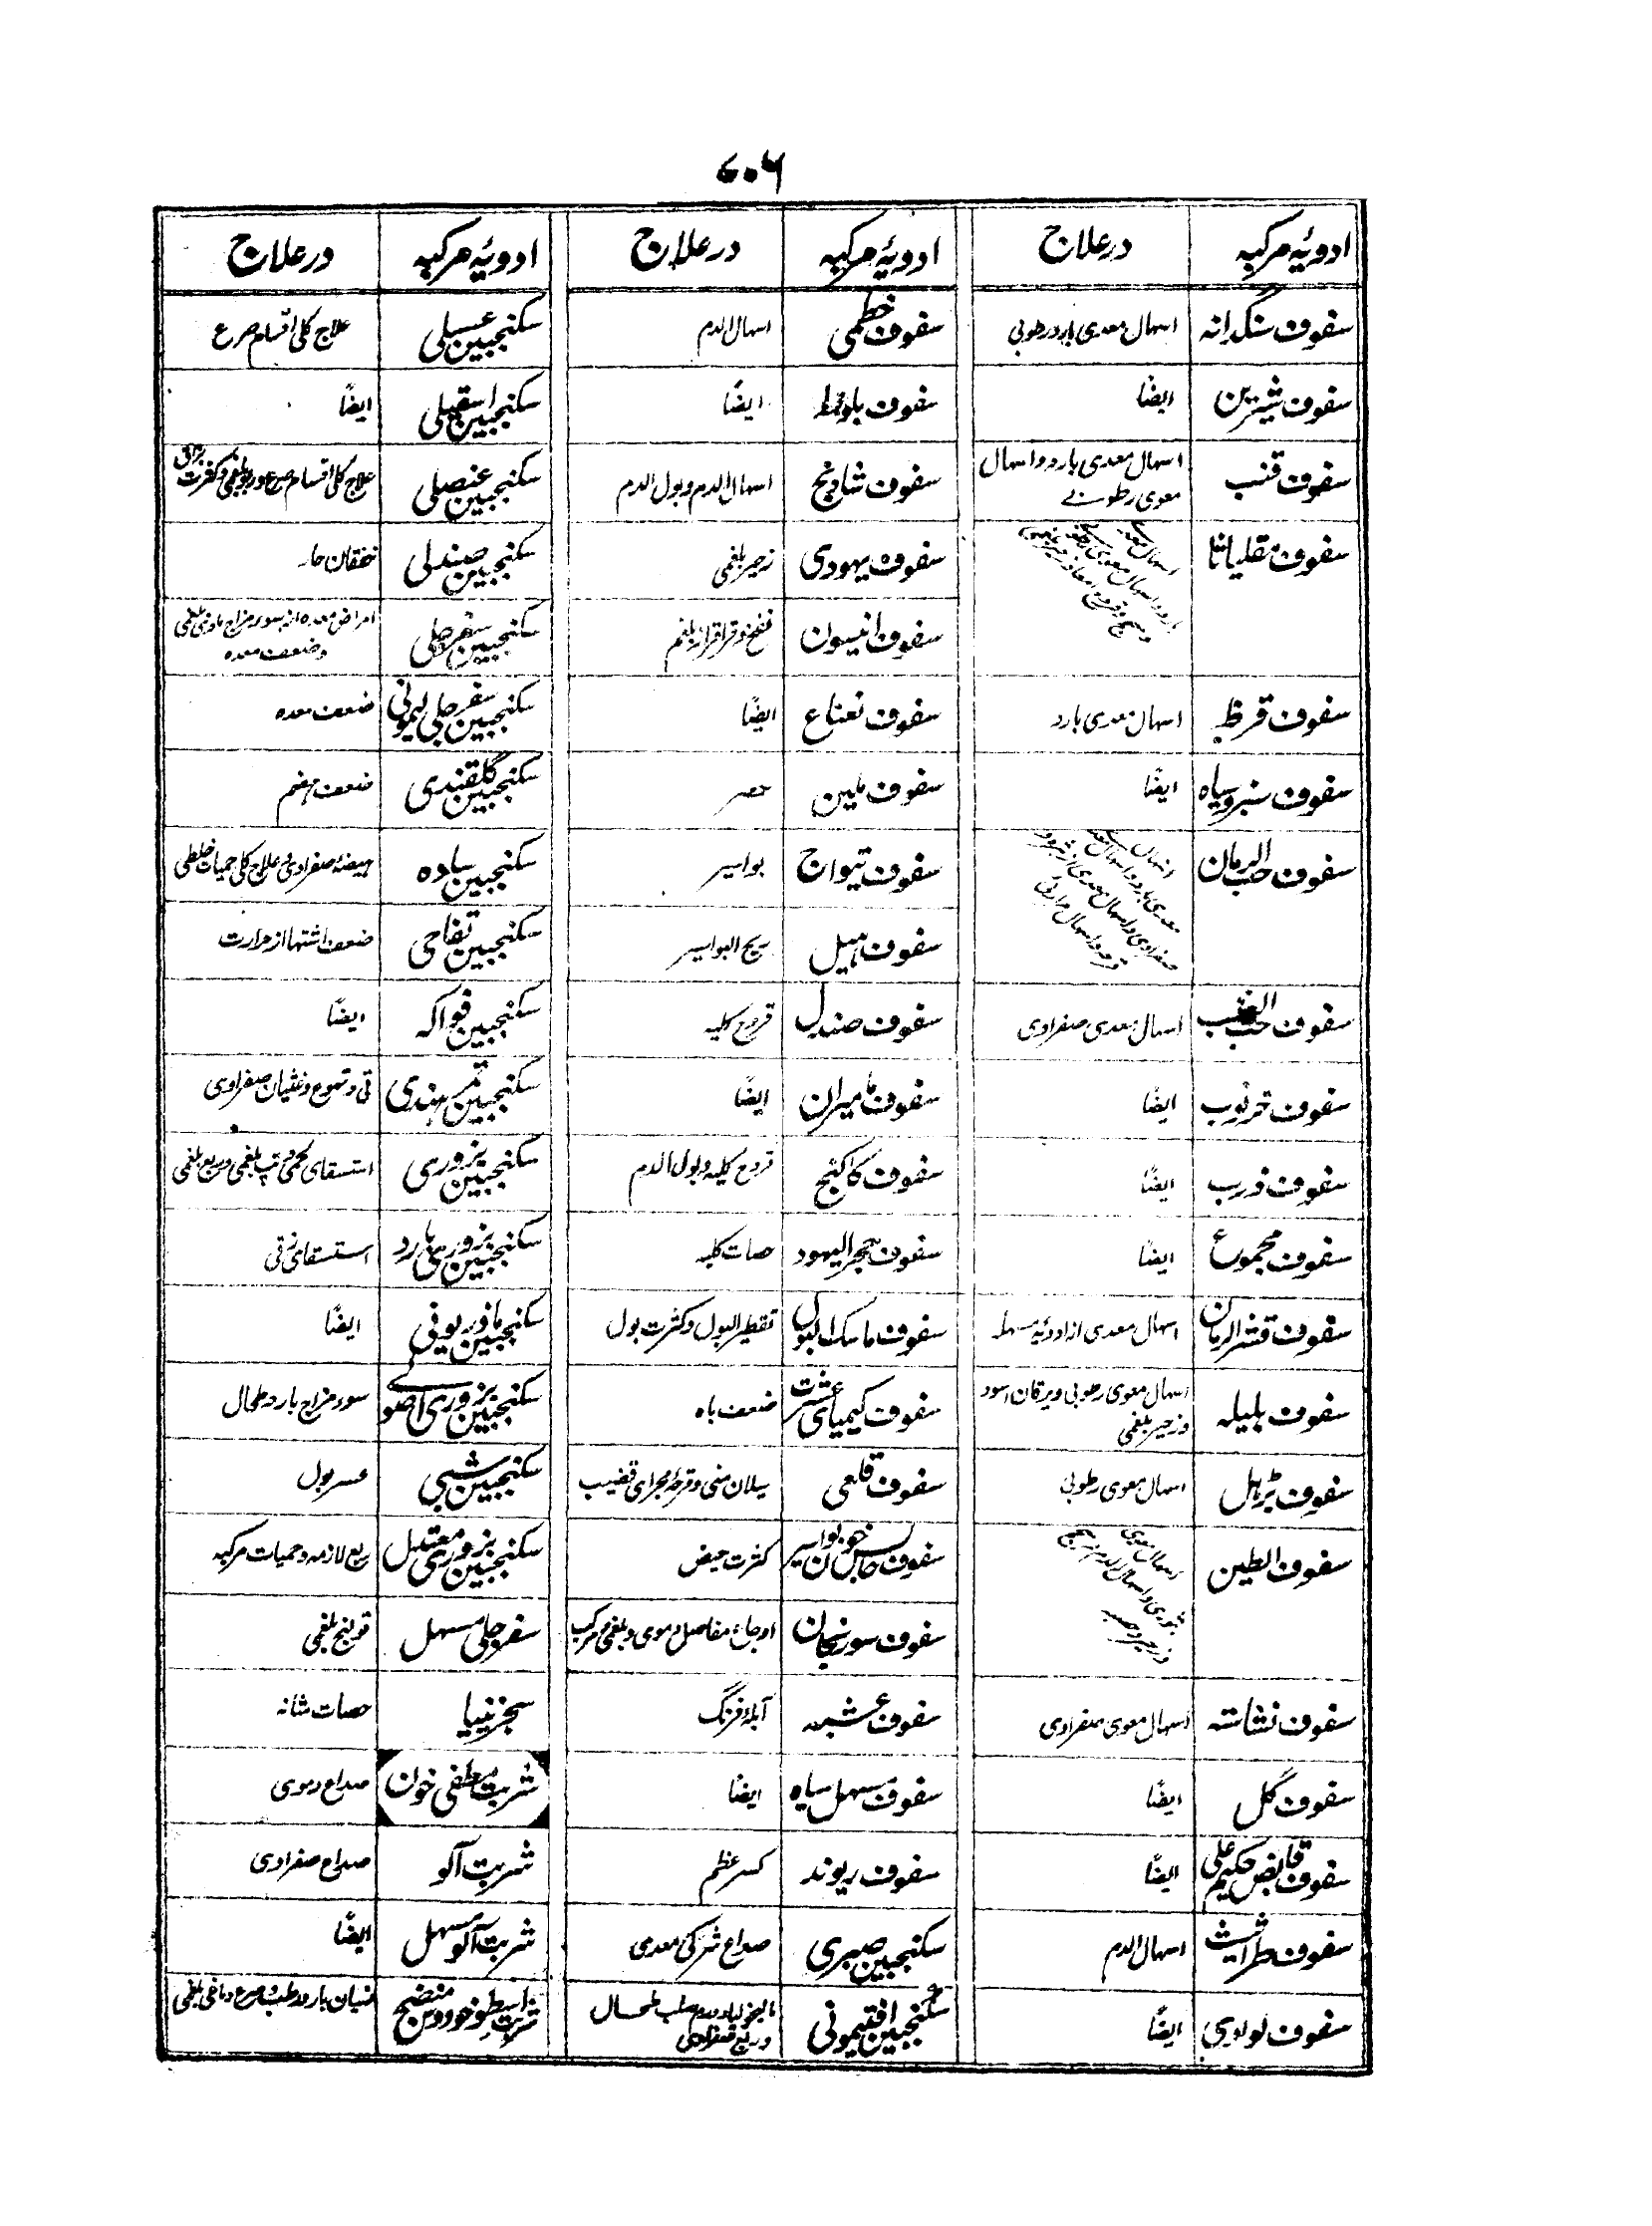 ۶۰۶
ادویۂ مرکبہ | در علاج | ادویۂ مرکبہ | در علاج | ادویۂ مرکبہ | در علاج
سفوف سنگدانہ | اسہال معدی بارد رطوبی | سفوف خطمی | اسہال الدم | سکنجبین عسلی | علاج کلی اقسام صرع
سفوف شیرین | ایضًا | سفوف بلوط | ایضًا | سکنجبین اسقیلی | ایضًا
سفوف قنب | اسہال معدی بارد و اسہال معوی رطوبے | سفوف شادنج | اسہال الدم و بول الدم | سکنجبین عنصلی | علاج کلی اقسام صرع و ربو بلغمی و کثرت بزاق
سفوف مقلیاثا | سفوف یہودی | زحیر بلغمی | سکنجبین صندلی | خفقان حار
سفوف انیسون | نفخ و قراقر از بلغم | سکنجبین سفرجلی | امراض معدہ از سوء مزاج مادی بلغمی وضعف معدہ
سفوف قرظ | اسہال معدی بارد | سفوف نعناع | ایضًا | سکنجبین سفرجلی لیمونی | ضعف معدہ
سفوف سبز و سیاہ | ایضًا | سفوف ملین | حصر | سکنجبین گلقندی | ضعف ہضم
سفوف حب الرمان | سفوف تیواج | بواسیر | سکنجبین سادہ | ہیضۂ صفراوی و علاج کلی حمیات خلطی
سفوف ہیل | ریح البواسیر | سکنجبین تفاحی | ضعف اشتہا از حرارت
سفوف حب | اسہال معدی صفراوی | سفوف صندل | قروح کلیہ | سکنجبین فواکہ | ایضًا
سفوف خرنوب | ایضًا | سفوف مامیران | ایضًا | سکنجبین تمر ہندی | قی و تہوع و غثیان صفراوی
سفوف ذرب | ایضًا | سفوف کاکنج | قروح کلیہ و بول الدم | سکنجبین بزوری | استسقای لحمی و تپ بلغمی و ربع بلغمی
سفوف مجموع | ایضًا | سفوف حجر الیہود | حصات کلیہ | سکنجبین بزوری بارد | استسقای زقی
سفوف قشر الرمان | اسہال معدی از ادویۂ مسہلہ | سفوف ماسک البول | تقطیر البول و کثرت بول | سکنجبین ماذریونی | ایضًا
سفوف بلیلہ | اسہال معوی رطوبی و یرقان اسود و زحیر بلغمی | سفوف کیمیای عشرت | ضعف باہ | سکنجبین بزوری اصولے | سوء مزاج بارد طحال
سفوف بڑہل | اسہال معوی رطوبی | سفوف قلعی | سیلان منی و قرحۂ مجرای قضیب | سکنجبین شبی | عسر بول
سفوف الطین | سفوف حابس خون بواسیر | کثرت حیض | سکنجبین بزوری معتدل | ربع لازمہ و حمیات مرکبہ
سفوف سورنجان | اوجاع مفاصل دموی و بلغمی و مرکب | سفرجلی مسہل | قولنج بلغمی
سفوف نشاستہ | اسہال معوی صفراوی | سفوف عشبہ | آبلۂ فرنگ | سجزنیا | حصات مثانہ
سفوف گل | ایضًا | سفوف مسہل سیاہ | ایضًا | شربت مطفی خون | صداع دموی
سفوف قابض حکیم علی | ایضًا | سفوف ریوند | کسر عظم | شربت آلو | صداع صفراوی
سفوف طراثیث | اسہال الدم | سکنجبین صبری | صداع شرکی معدی | شربت آلو مسہل | ایضًا
سفوف لولوی | ایضًا | سکنجبین افتیمونی | مالیخولیا و ورم صلب طحال و ربع صفراوی | شربت اسطوخودوس منضج | نسیان بارد رطب و صرع دماغی بلغمی